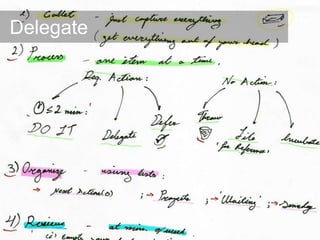 Delegate
1) Collect - Just capture everything
(get everything out of your head)
2) Process - one item at a time.
Req. Action: No Action:
① ≤ 2 min: Defer Trash
DO IT Delegate File Incubate
'for Reference'
3) Organize - using lists:
→ Next Action(s) ; → Projects ; → 'Waiting' ; → Someday
4) Review - at min. 1/week.